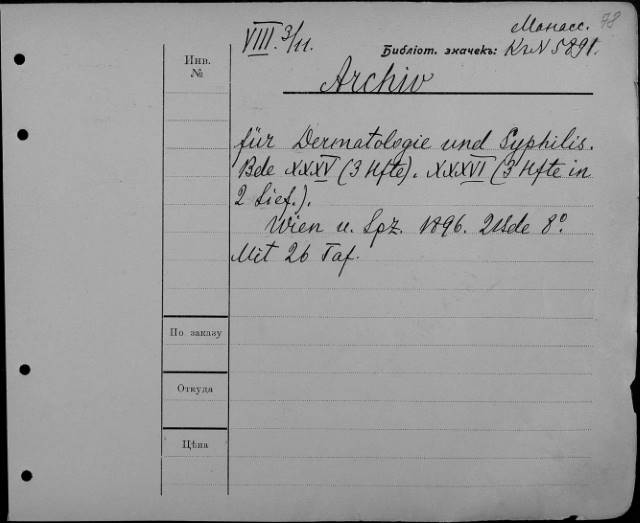 78
Манасс.
VIII. 3/11.
Библіот. значекъ: Кг N 5891.
Инв.
№
Archiv
für Dermatologie und Syphilis.
Bde XXXV (3 Hfte). XXXVI (3 Hfte in
2 Lief.).
Wien u. Lpz. 1896. 2 Bde 8°.
Mit 26 Taf.
По заказу
Откуда
Цѣна